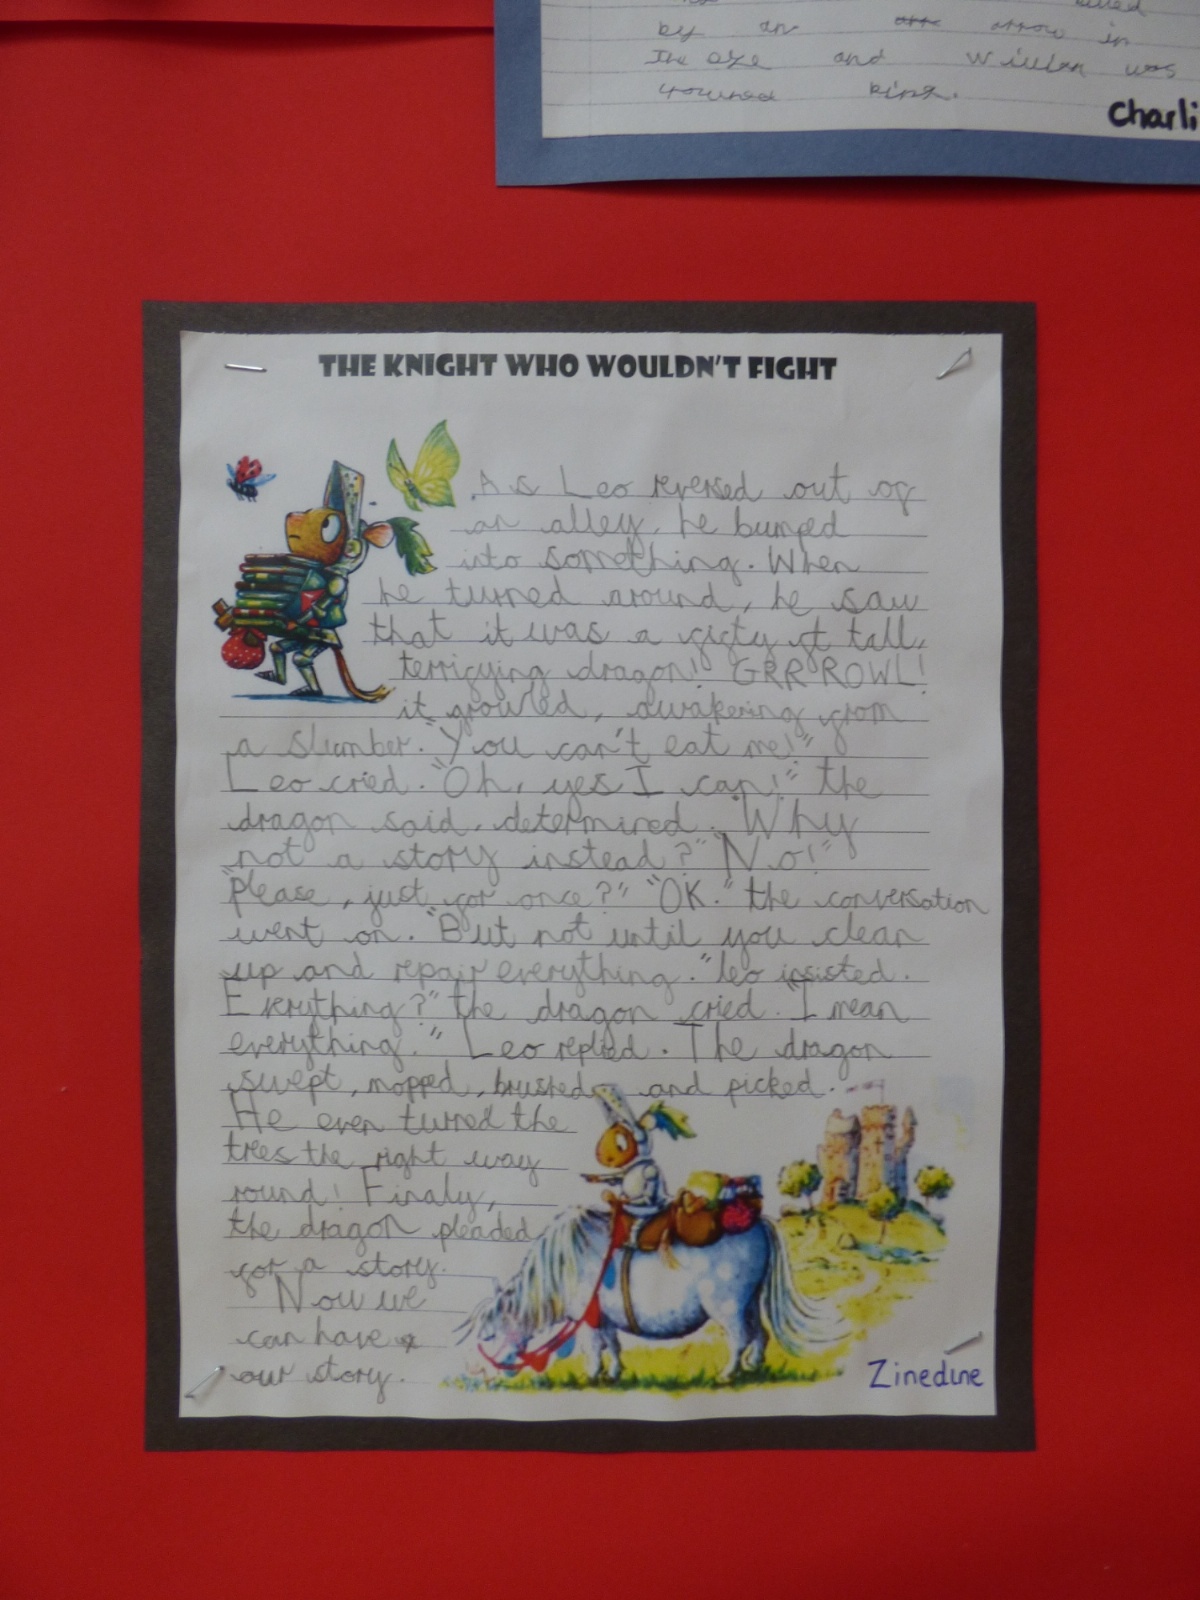 by an arrow in
the eye and William was
crowned king.
Charli
THE KNIGHT WHO WOULDN'T FIGHT
As Leo reversed out of
an alley, he bumped
into something. When
he turned around, he saw
that it was a fifty ft tall,
terrifying dragon! GRRROWL!
it growled, awakening from
a slumber. "You can't eat me!"
Leo cried. "Oh, yes I can!" the
dragon said, determined. "Why
not a story instead?" "No!"
"please, just for once?" "OK." the conversation
went on. "But not until you clean
up and repair everything." leo insisted.
Everything?" the dragon cried. "I mean
everything." Leo replied. The dragon
swept, mopped, brushed and picked.
He even turned the
trees the right way
round! Finaly,
the dragon pleaded
for a story.
Now we
can have
our story.
Zinedine